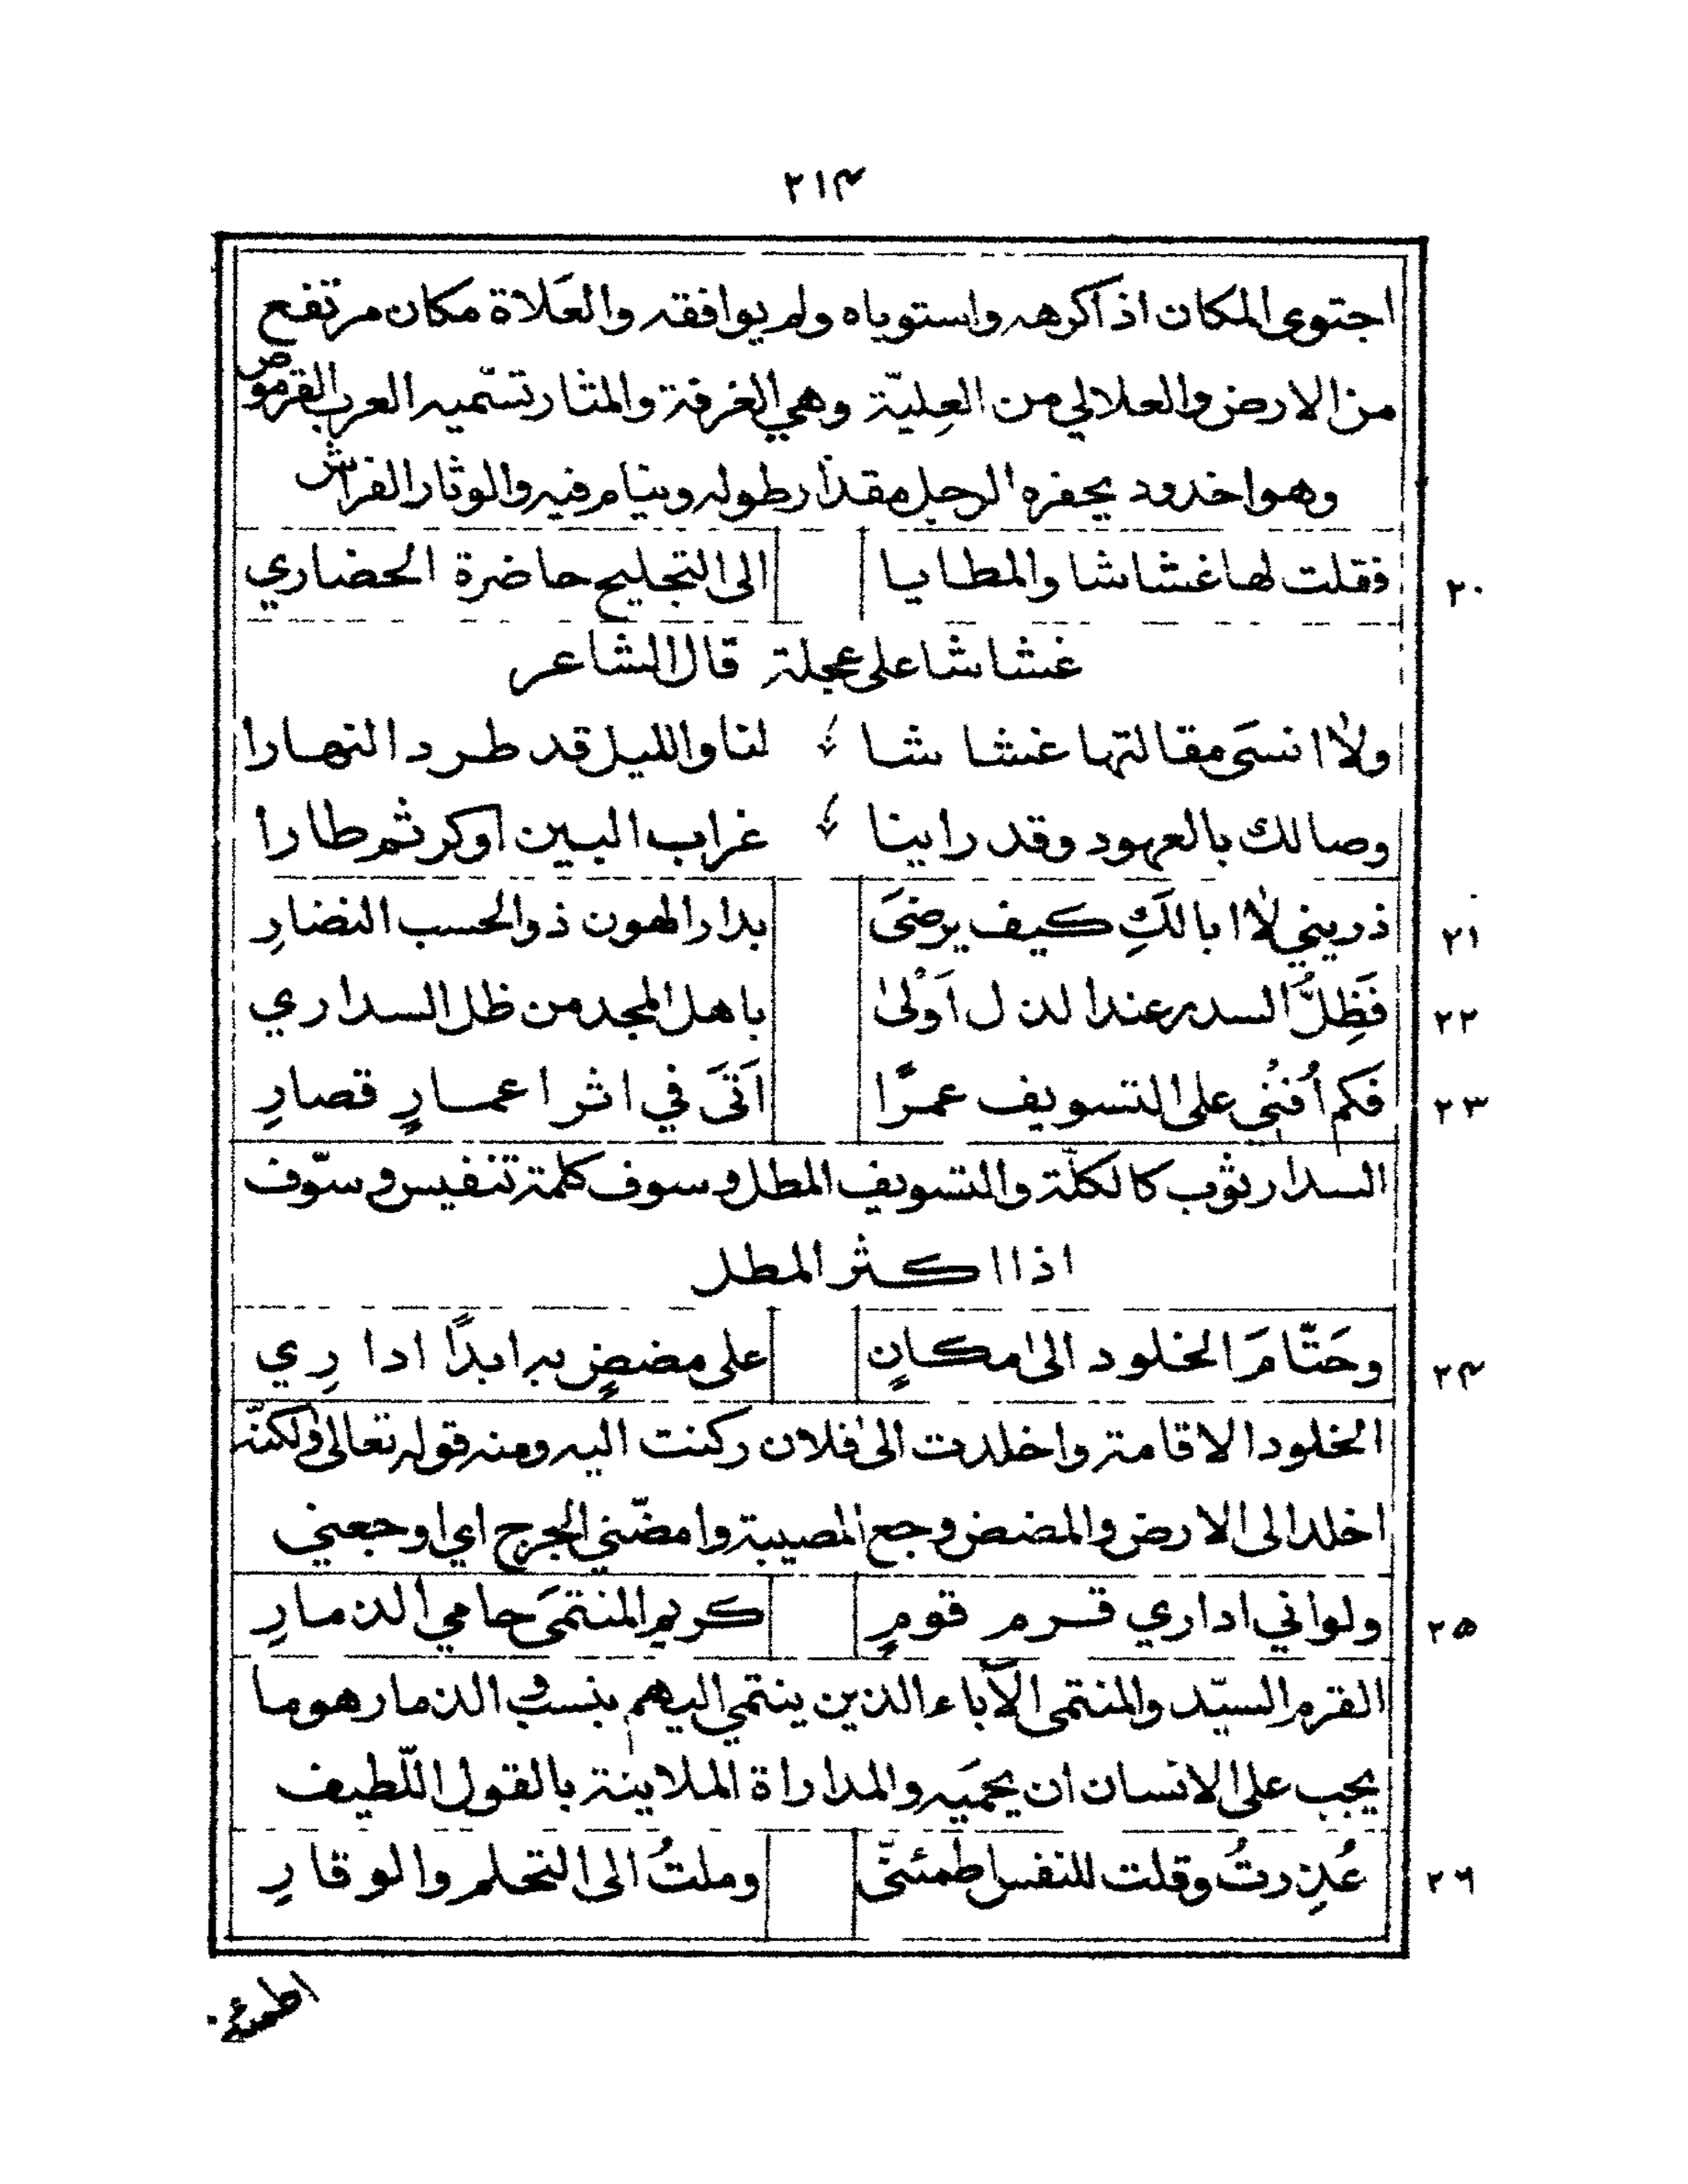 ٢١٤
اجتوى المكان اذا كرهه واستوباه ولم يوافقه والعَلاة مكان مرتفع
من الارض والعلالي من العِليّة وهي الغرفة والمثار تسّميه العرب القرموص
وهو اخدود يحفره الرجل مقدار طوله وينام فيه والوثار الفراش
٢٠ فقلت لها غشاشا والمطايا الى التجليح حاضرة الحضاري
غشاشا على عجلة قال الشاعر
ولا انسَى مقالتها غشا شا لنا والليل قد طرد النهارا
وصا لك بالعهود وقد راينا غراب البين اوكر ثم طارا
٢١ ذريني لا ابا لَكِ كيف يرضَى بدار الهون ذو الحسب النضارِ
٢٢ فَظِلُّ السدر عند الذل اَوْلى باهل المجد من ظل السداري
٢٣ فَكم اُفنُى على التسويف عمرًا اَتَى في اثر اعمارٍ قصارِ
السدار ثوب كالكلّة والتسويف المطل وسوف كلمة تنفيس وسوّف
اذا اكثر المطل
٢٤ وحَتّامَ الخلود الى مكانٍ على مضضٍ به ابدًا ادا رِي
الخلود الاقامة واخلدت الى فلان ركنت اليه ومنه قوله تعالى ولكنّه
اخلد الى الارض والمضض وجع المصيبة وامضّني الجرح اي اوجعني
٢٥ ولو اني اداري قرم قومٍ كريم المنتمَى حامي الذمارِ
القرم السيّد والمنتمى الآباء الذين ينتمي اليهم بنسب والذمار هو ما
يجب على الانسان ان يحمَيه والمداراة الملاينة بالقول اللّطيف
٢٦ عُذِرتُ وقلت للنفس اطمئنّى وملتُ الى التحلم والوقارِ